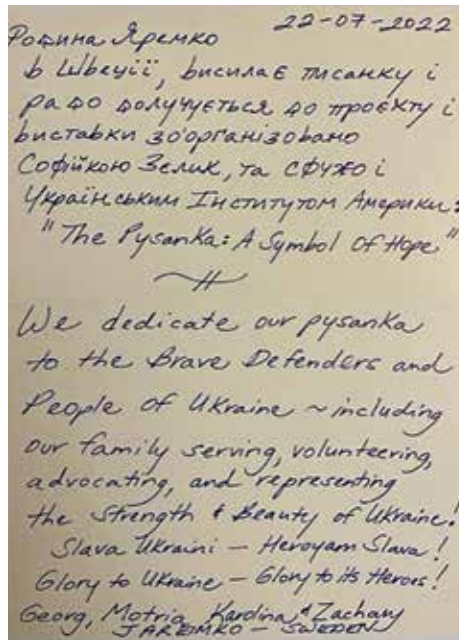 22-07-2022
Родина Яремко
в Швеції, висилає писанку і
радо долучується до проєкту і
виставки зо'організовано
Софійкою Зєлик, та СФУЖО і
Українським Інститутом Америки:
"The Pysanka: A Symbol of Hope"
We dedicate our pysanka
to the Brave Defenders and
People of Ukraine ~ including
our family serving, volunteering,
advocating, and representing
the Strength & Beauty of Ukraine!
Slava Ukraini — Heroyam Slava!
Glory to Ukraine — Glory to its Heroes!
Georg, Motria, Kardina & Zachary
JAREMKO — SWEDEN